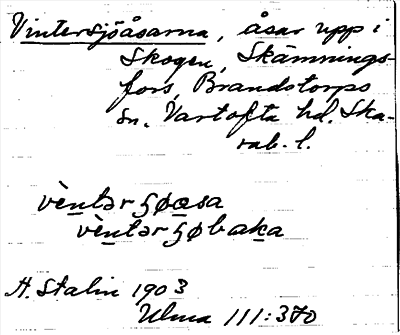 Vintersjöåsarna, åsar upp i
Skogen, Skämnings-
fors, Brandstorps
sn. Vartofta hd. Ska-
rab. l.
vèntər ʂøasa
vèntər ʂøbaka
H. Stalin 1903
Ulma 111:370